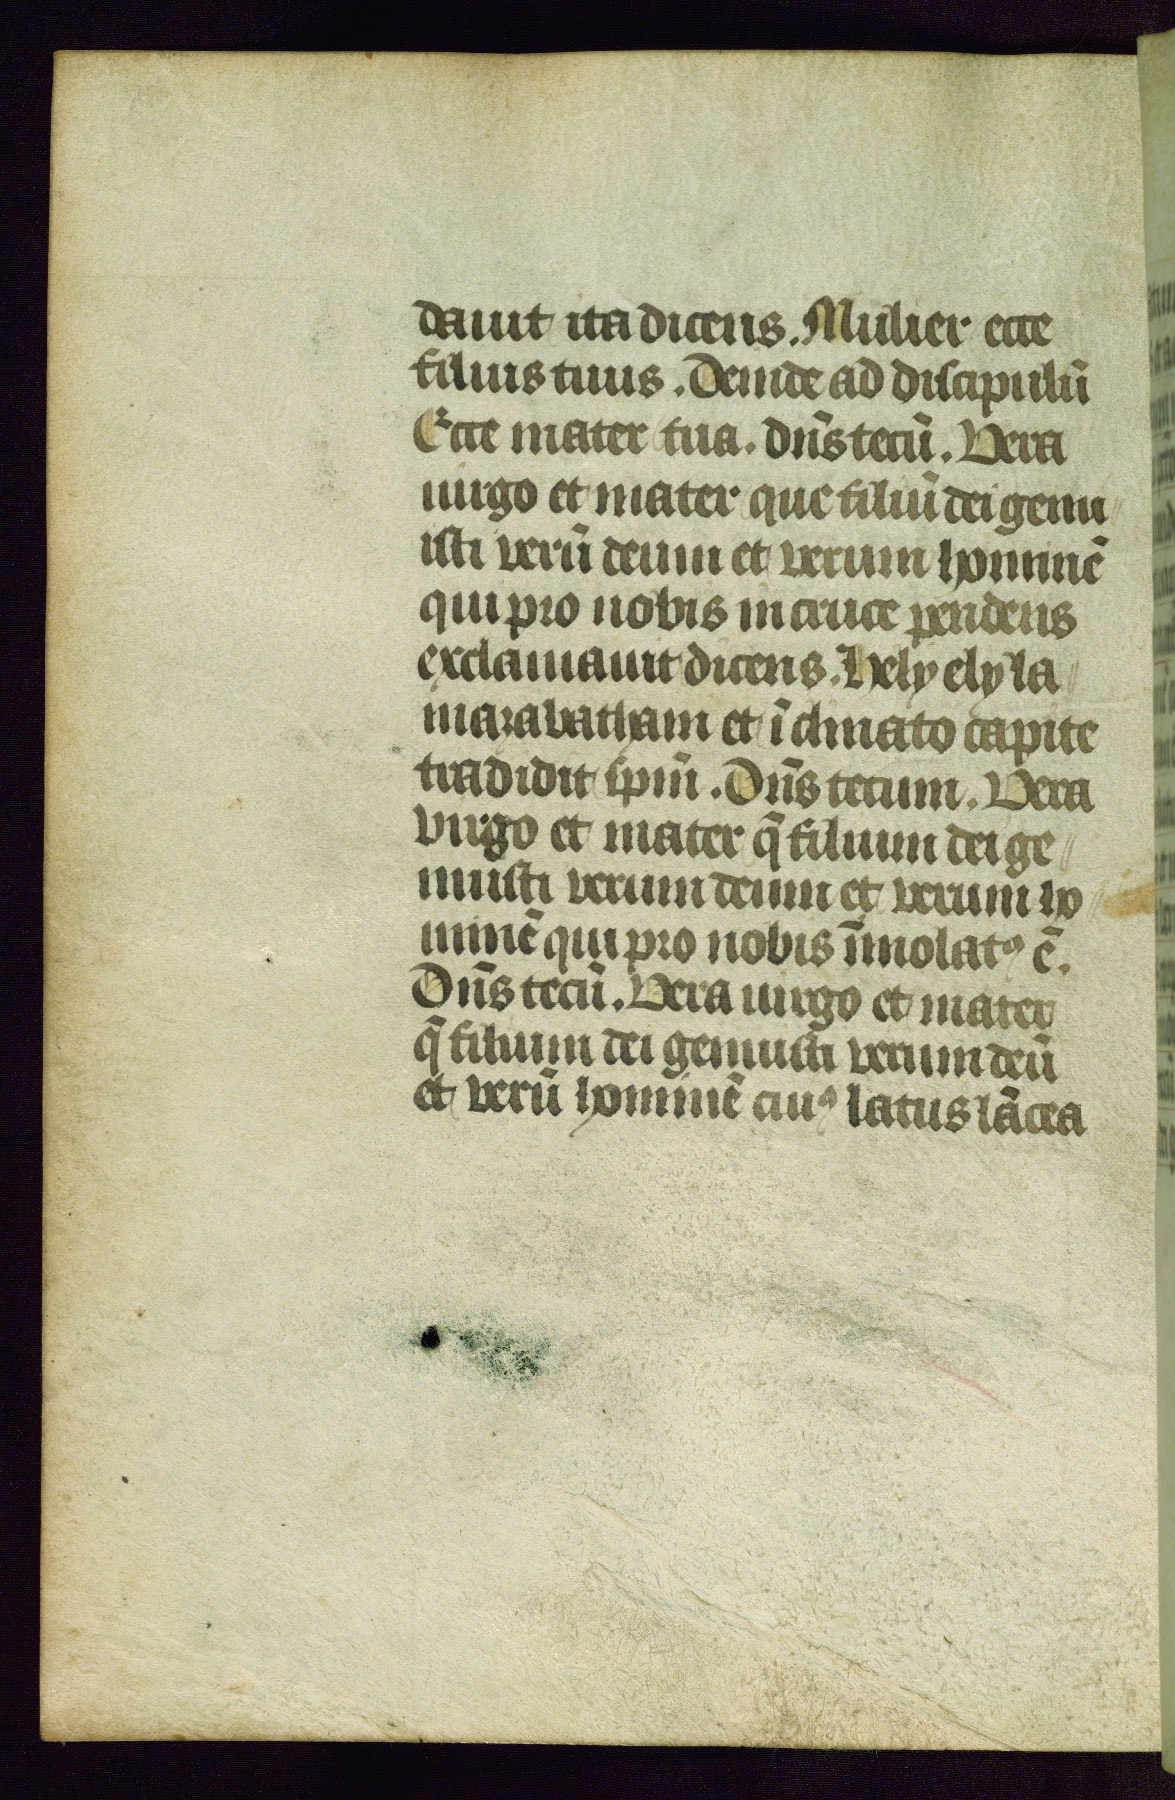 dauit ita dicens. Mulier ecce
filius tuus. Deinde ad discipulū
Ecce mater tua. dn̄s tecū. Vera
uirgo et mater que filiū dei genu
isti verū deum et verum hominē
qui pro nobis in cruce pendens
exclamauit dicens. Hely ely la
mazabatham et īclinato capite
tradidit spm̄. Dn̄s tecum. Vera
virgo et mater q̄ filium dei ge
nuisti verum deum et verum ho
minē qui pro nobis īmolatꝰ ē.
Dn̄s tecū. Vera uirgo et mater
q̄ filium dei genuisti verum deū
et verū hominē cuiꝰ latus lācea